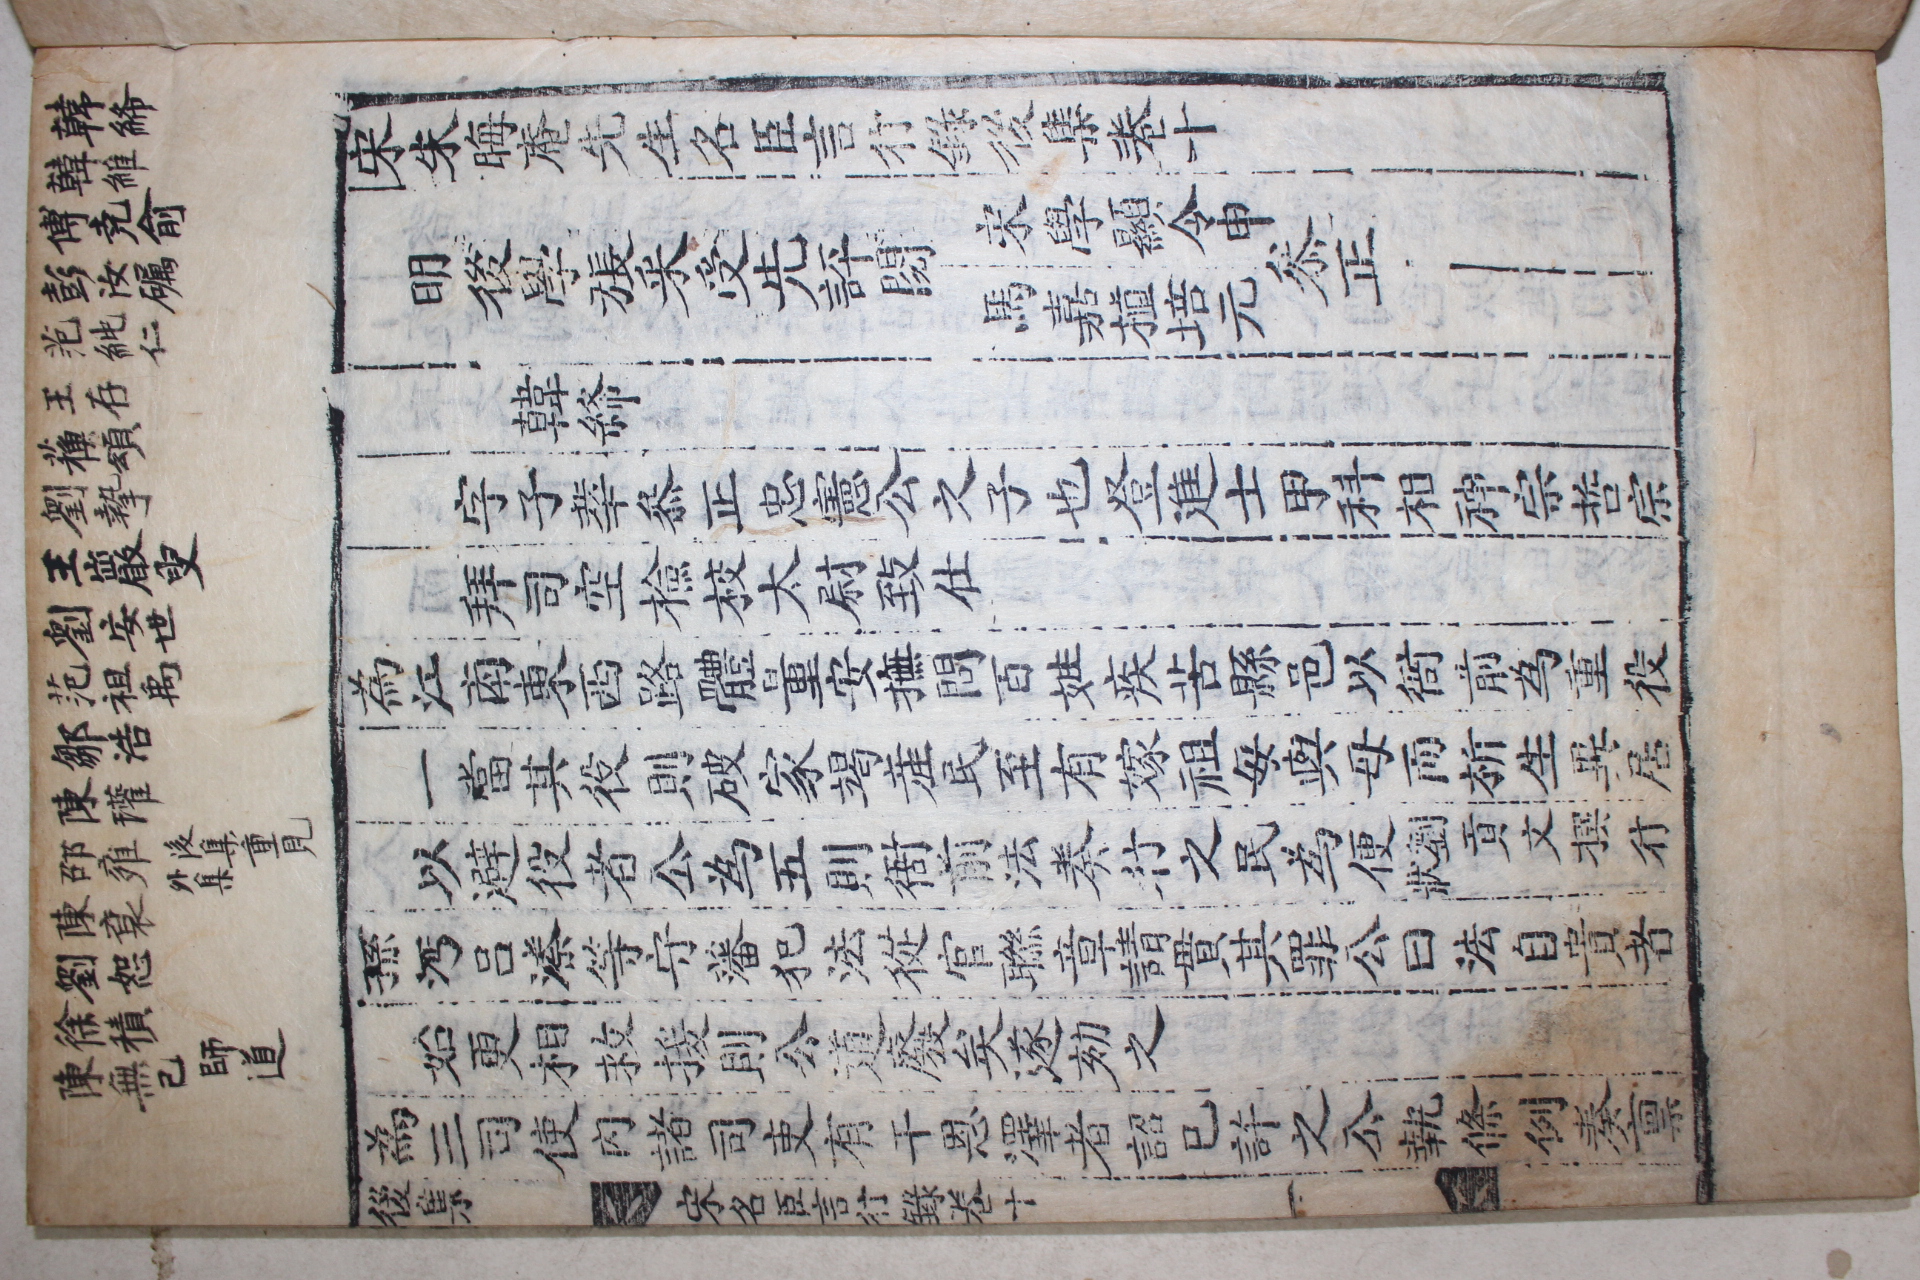 韓絳
韓維
傅堯俞
彭汝礪
范純仁
王存
蘇頌
劉摯
王巖叟
劉安世
范祖禹
鄒浩
陳瓘
邵雍 後集重見
外集
陳襄
劉恕
徐積
陳無己師道
宋朱晦庵先生名臣言行錄後集卷十
明後學張采受先評閱
宋學顯令申
馬嘉植培元
叅正
韓絳
字子華叅正忠憲公之子也登進士甲科相神宗哲宗
拜司空檢校太尉致仕
為江南東西路體量安撫問百姓疾苦縣邑以衙前為重役
一當其役則破家竭產民至有嫁祖母與母而析生異居
以避役者公為五則衙前法奏行之民為便劉貢文撰行
狀
孫沔呂溱等守藩犯法從官聯章請貰其罪公曰法自貴者
始更相救援則公道廢矣遂劾之
為三司使內諸司吏有干恩澤者詔已許之公執條例奏稟
後集 宋名臣言行錄卷十 一